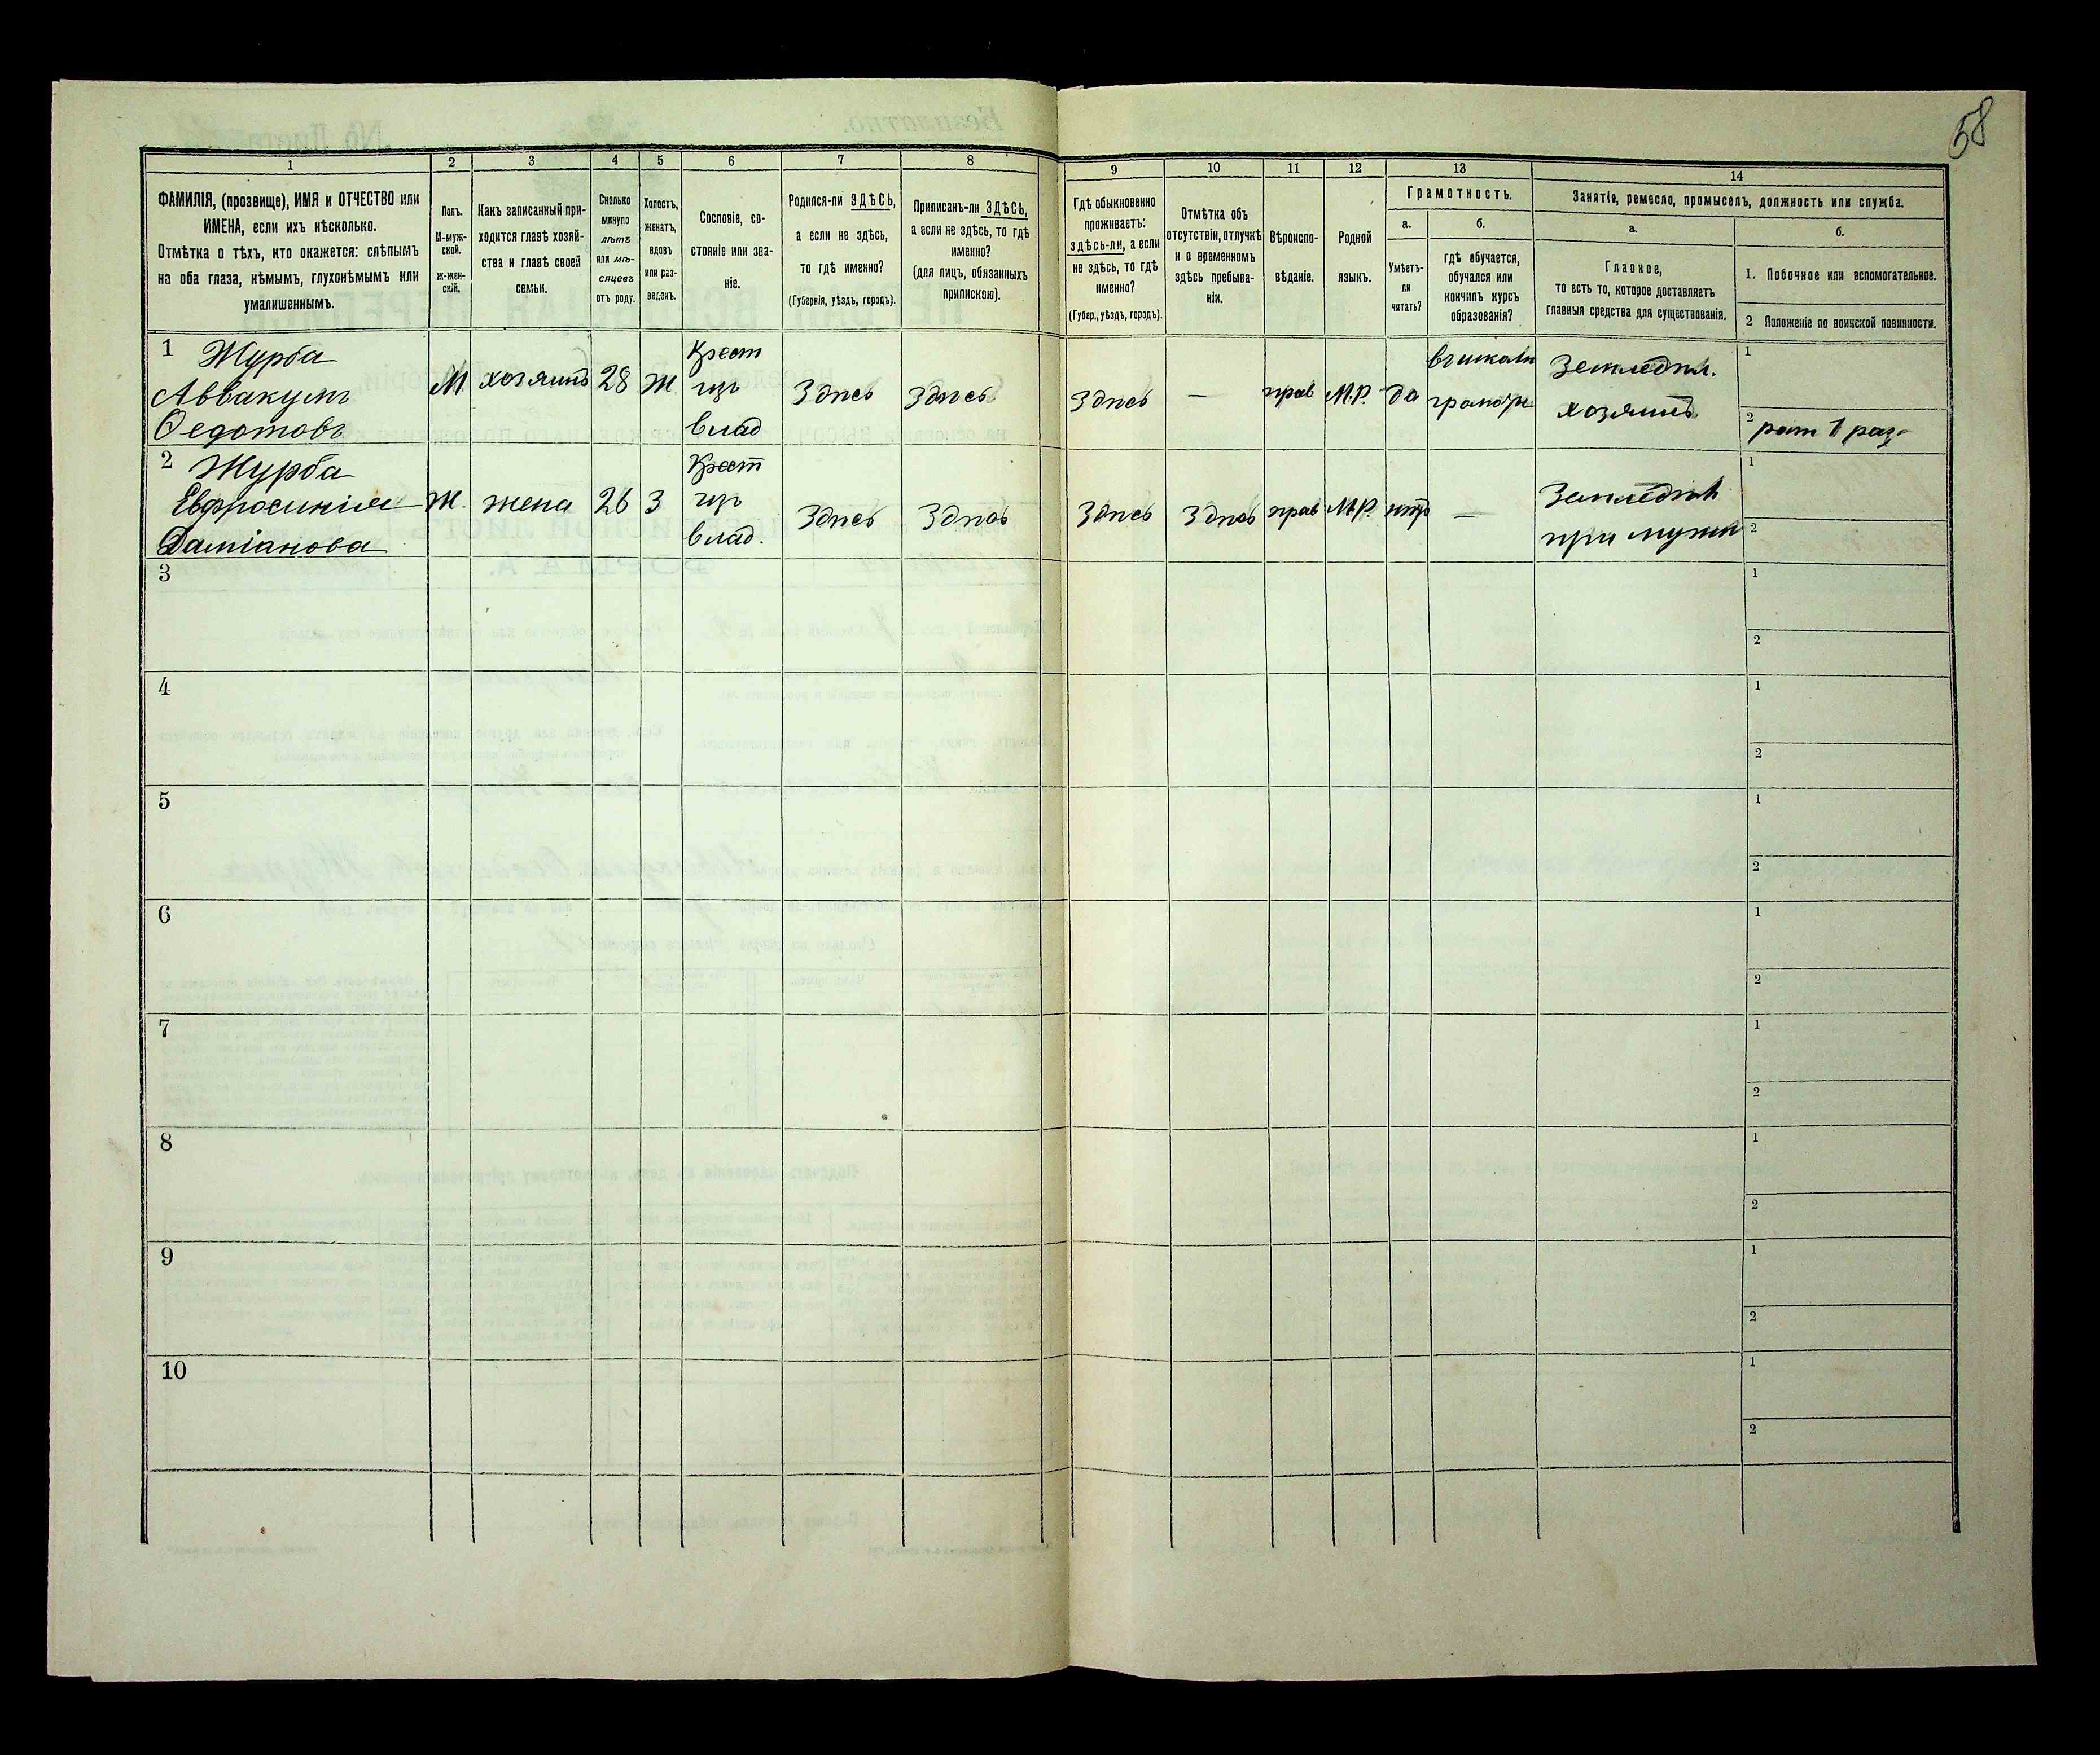 58
1
2
3
4
5
6
7
8
9
10
11
12
13
14
ФАМИЛІЯ, (прозвище), ИМЯ и ОТЧЕСТВО или
ИМЕНА, если ихъ нѣсколько.
Отмѣтка о тѣхъ, кто окажется: слѣпымъ
на оба глаза, нѣмымъ, глухонѣмымъ или
умалишеннымъ.
Полъ.
М-муж-
ской.
ж-жен-
скій.
Какъ записанный при-
ходится главѣ хозяй-
ства и главѣ своей
семьи.
Сколько
минуло
лѣтъ
или мѣ-
сяцевъ
отъ роду.
Холостъ,
женатъ,
вдовъ
или раз-
веденъ.
Сословіе, со-
стояніе или зва-
ніе.
Родился-ли ЗДѢСЬ,
а если не здѣсь,
то гдѣ именно?
(Губернія, уѣздъ, городъ).
Приписанъ-ли ЗДѢСЬ,
а если не здѣсь, то гдѣ
именно?
(для лицъ, обязанныхъ
припискою).
Гдѣ обыкновенно
проживаетъ:
здѣсь-ли, а если
не здѣсь, то гдѣ
именно?
(Губер., уѣздъ, городъ).
Отмѣтка объ
отсутствіи, отлучкѣ
и о временномъ
здѣсь пребыва-
ніи.
Вѣроиспо-
вѣданіе.
Родной
языкъ.
Грамотность.
а.
Умѣетъ-
ли
читать?
б.
гдѣ обучается,
обучался или
кончилъ курсъ
образованія?
Занятіе, ремесло, промыселъ, должность или служба.
а.
Главное,
то есть то, которое доставляетъ
главныя средства для существованія.
б.
1. Побочное или вспомогательное.
2 Положеніе по воинской повинности.
1 Журба
Аввакумъ
Ѳедотовъ
М.
хозяинъ
28
Ж
Крест
изъ
влад
Здѣсь
Здѣсь
Здѣсь
—
прав
М.Р.
да
въ школѣ
грамоты
Земледѣл.
хозяинъ
1
2 рат 1 раз.
2 Журба
Евфросинія
Даміанова
Ж.
жена
26
З
Крест
изъ
влад.
Здѣсь
Здѣсь
Здѣсь
Здѣсь
прав
М.Р.
нѣтъ
—
Земледѣл
при мужѣ
1
2
3
1
2
4
1
2
5
1
2
6
1
2
7
1
2
8
1
2
9
1
2
10
1
2